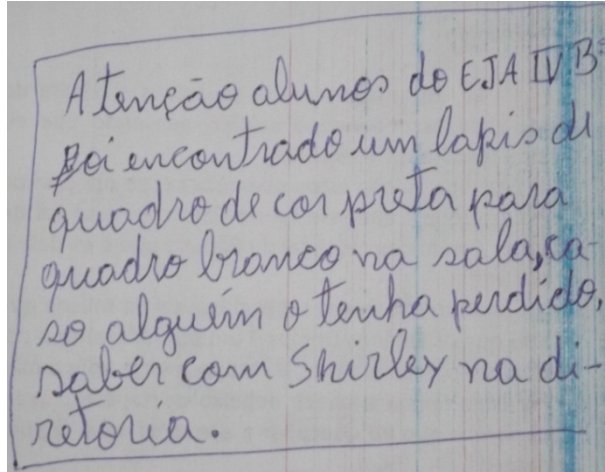 Atenção alunos do EJA IV B
Foi encontrado um lapis de
quadro de cor preta para
quadro branco na sala, ca-
so alguém o tenha perdido,
saber com Shirley na di-
retoria.